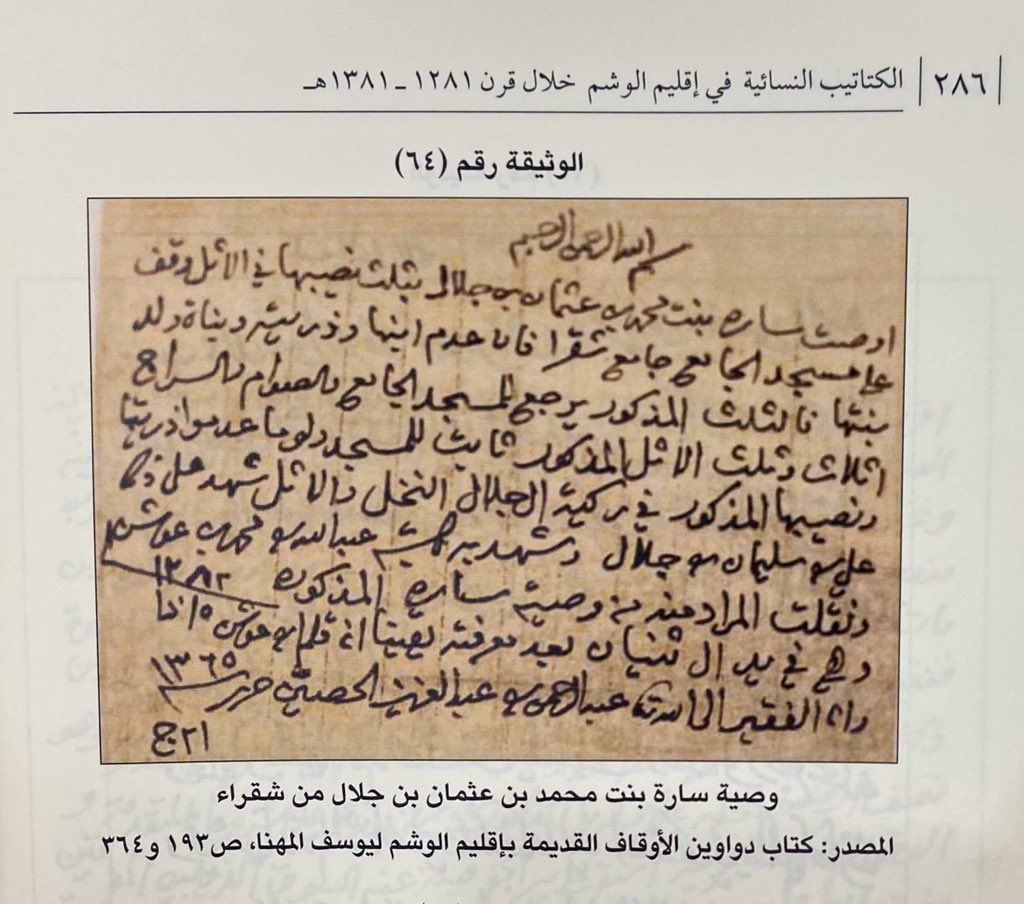 ٢٨٦ الكتاتيب النسائية في إقليم الوشم خلال قرن ١٢٨١ ـ ١٣٨١هـ
الوثيقة رقم (٦٤)
بسم الله الرحمن الرحيم
اوصت ساره بنت محمد بن عثمان بن جلال بثلث نصيبها في الاثل وقف
على مسجد الجامع جامع شقرا فان عدم ابنها وذريته وبناة ولد
بنتها فالثلث المذكور يرجع لمسجد الجامع والصوام والسراج
اثلاث وثلث الاثل المذكور ثابت للمسجد ولو ما عدموا ذريتها
ونصيبها المذكور في ركية الجلال النخل والاثل شهد على ذلك
علي بن سليمان بن جلال وشهد به كاتبه عبدالله بن محمد بن عويشق
ونقلت المراد منه من وصية ساره المذكوره ١٢٨٢
وهي في يد ال ثنيان بعد معرفته يقينا انه قلم بن عويشق
وانا الفقير الى الله تعالى عبدالرحمن بن عبدالعزيز الحصين حرر سنة ١٣٦٥
٢١ ج
وصية سارة بنت محمد بن عثمان بن جلال من شقراء
المصدر: كتاب دواوين الأوقاف القديمة بإقليم الوشم ليوسف المهنا، ص١٩٣ و٣٦٤